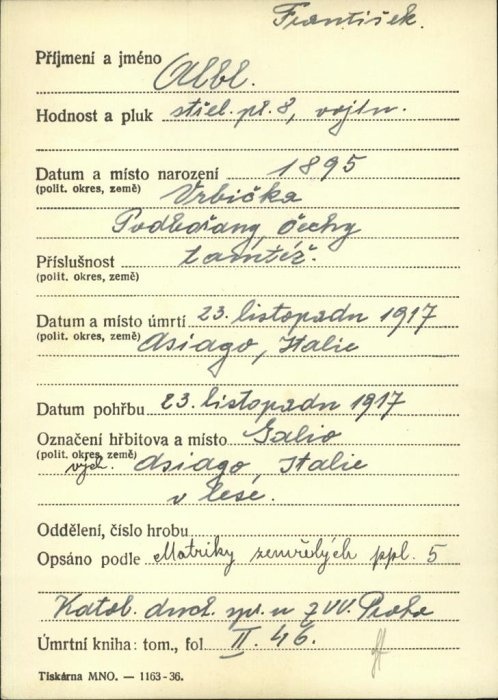 František.
Příjmení a jméno Albl.
Hodnost a pluk střel. pl. 8, vojín.
Datum a místo narození 1895
(polit. okres, země) Vrbička
Podbořany, Čechy
Příslušnost tamtéž.
(polit. okres, země)
Datum a místo úmrtí 23. listopadu 1917
(polit. okres, země) Asiago, Italie
Datum pohřbu 23. listopadu 1917
Označení hřbitova a místo Galio
(polit. okres, země)
vých. Asiago, Italie
v lese.
Oddělení, číslo hrobu
Opsáno podle Matriky zemřelých ppl. 5
Katol. duch. spr. u ZVV. Praha
Úmrtní kniha: tom., fol II. 46.
Tiskárna MNO. — 1163-36.